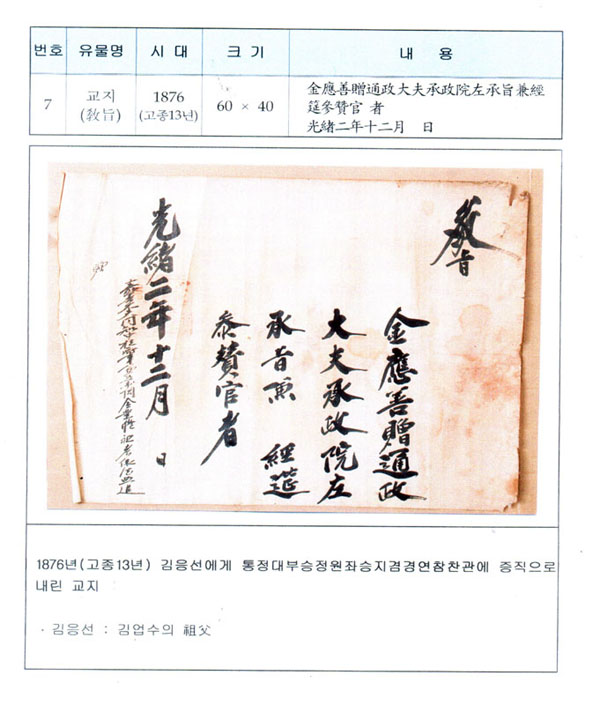 번호 유물명 시 대 크 기 내 용
7 교지 (敎旨) 1876 (고종13년) 60 × 40 金應善贈通政大夫承政院左承旨兼經
筵參贊官 者
光緖二年十二月 日
敎旨
金應善贈通政
大夫承政院左
承旨兼 經筵
參贊官者
光緖二年十二月 日
1876년(고종13년) 김응선에게 통정대부승정원좌승지겸경연참찬관에 증직으로
내린 교지
· 김응선 : 김업수의 祖父